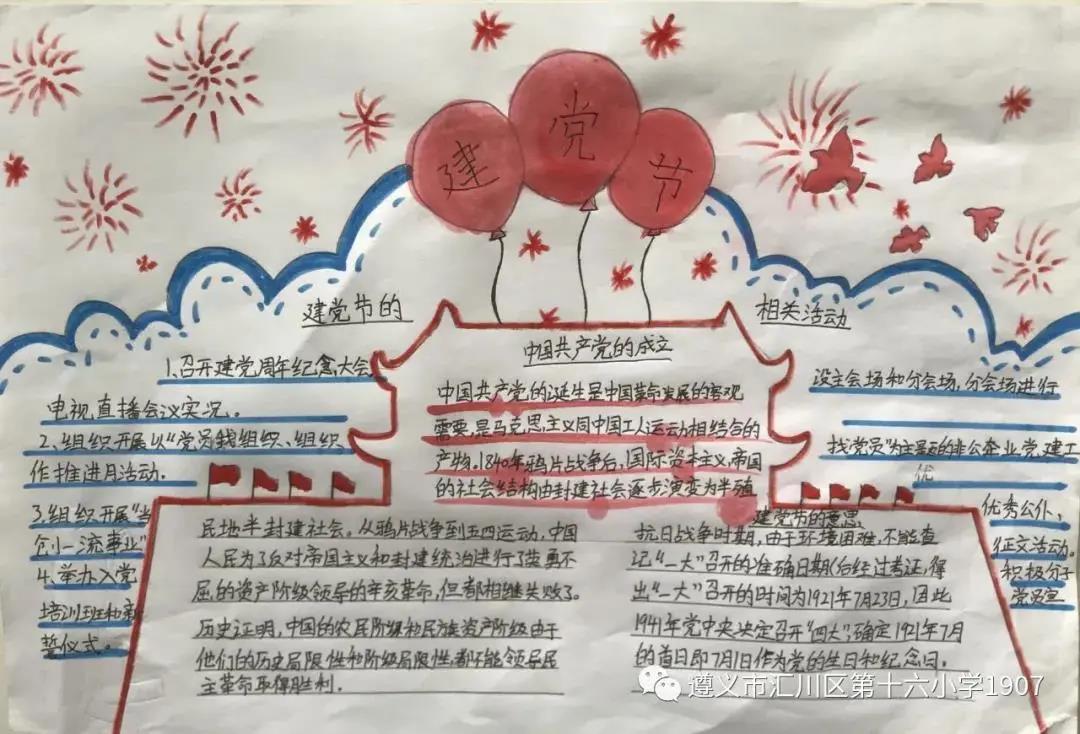 建党节
建党节的
相关活动
1、召开建党周年纪念大会
设主会场和分会场,分会场进行
电视直播会议实况、。
2、组织开展以“党员找组织、组织
找党员”为主题的非公企业党建工
作推进月活动.
优
3.组织开展“当
优秀公仆、
创一流事业”
征文活动。
4、举办入党
积极分子
培训班和新
党员宣
誓仪式。
中国共产党的成立
中国共产党的诞生是中国革命发展的客观
需要,是马克思主义同中国工人运动相结合的
产物。1840年鸦片战争后,国际资本主义,帝国
的社会结构由封建社会逐步演变为半殖
民地半封建社会。从鸦片战争到五四运动,中国
人民为了反对帝国主义和封建统治进行了英勇不
屈的资产阶级领导的辛亥革命,但都相继失败了。
历史证明,中国的农民阶级和民族资产阶级由于
他们的历史局限性和阶级局限性,都不能领导民
主革命取得胜利.
建党节的意思
抗日战争时期,由于环境困难,不能查
记“一大”召开的准确日期(后经过考证,得
出“一大”召开的时间为1921年7月23日,因此
1941年党中央决定召开“四大”,确定1921年7月
的首日即7月1日作为党的生日和纪念日。
遵义市汇川区第十六小学1907